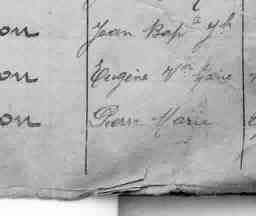 on Jean Bap.te Jh
on Eugène
on Pierre Marie